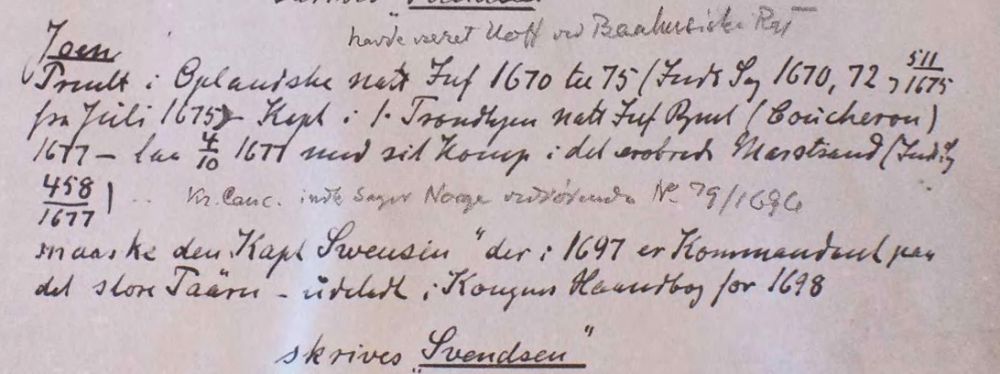 skrives "Svendsen
havde været Off ved Baahusiske Rgt
Joen
Prmlt i Oplandske natl Inf 1670 til 75 (Indk Sag 1670, 72, 511/1675
fra Juli 1675) - Kapt i 1. Trondhjem natl Inf Rgmt (Coucheron)
1677 - laa 4/10 1677 med sit Komp i det erobrede Marstrand (Indk Sag
458/1677) .. Kr. Canc. indk Sager Norge vedrørende No 79/1696
maaske den "Kapt Swensin" der i 1697 er Kommandant paa
det store Taarn - udeladt i Kongens Haandbog for 1698
skrives "Svendsen"